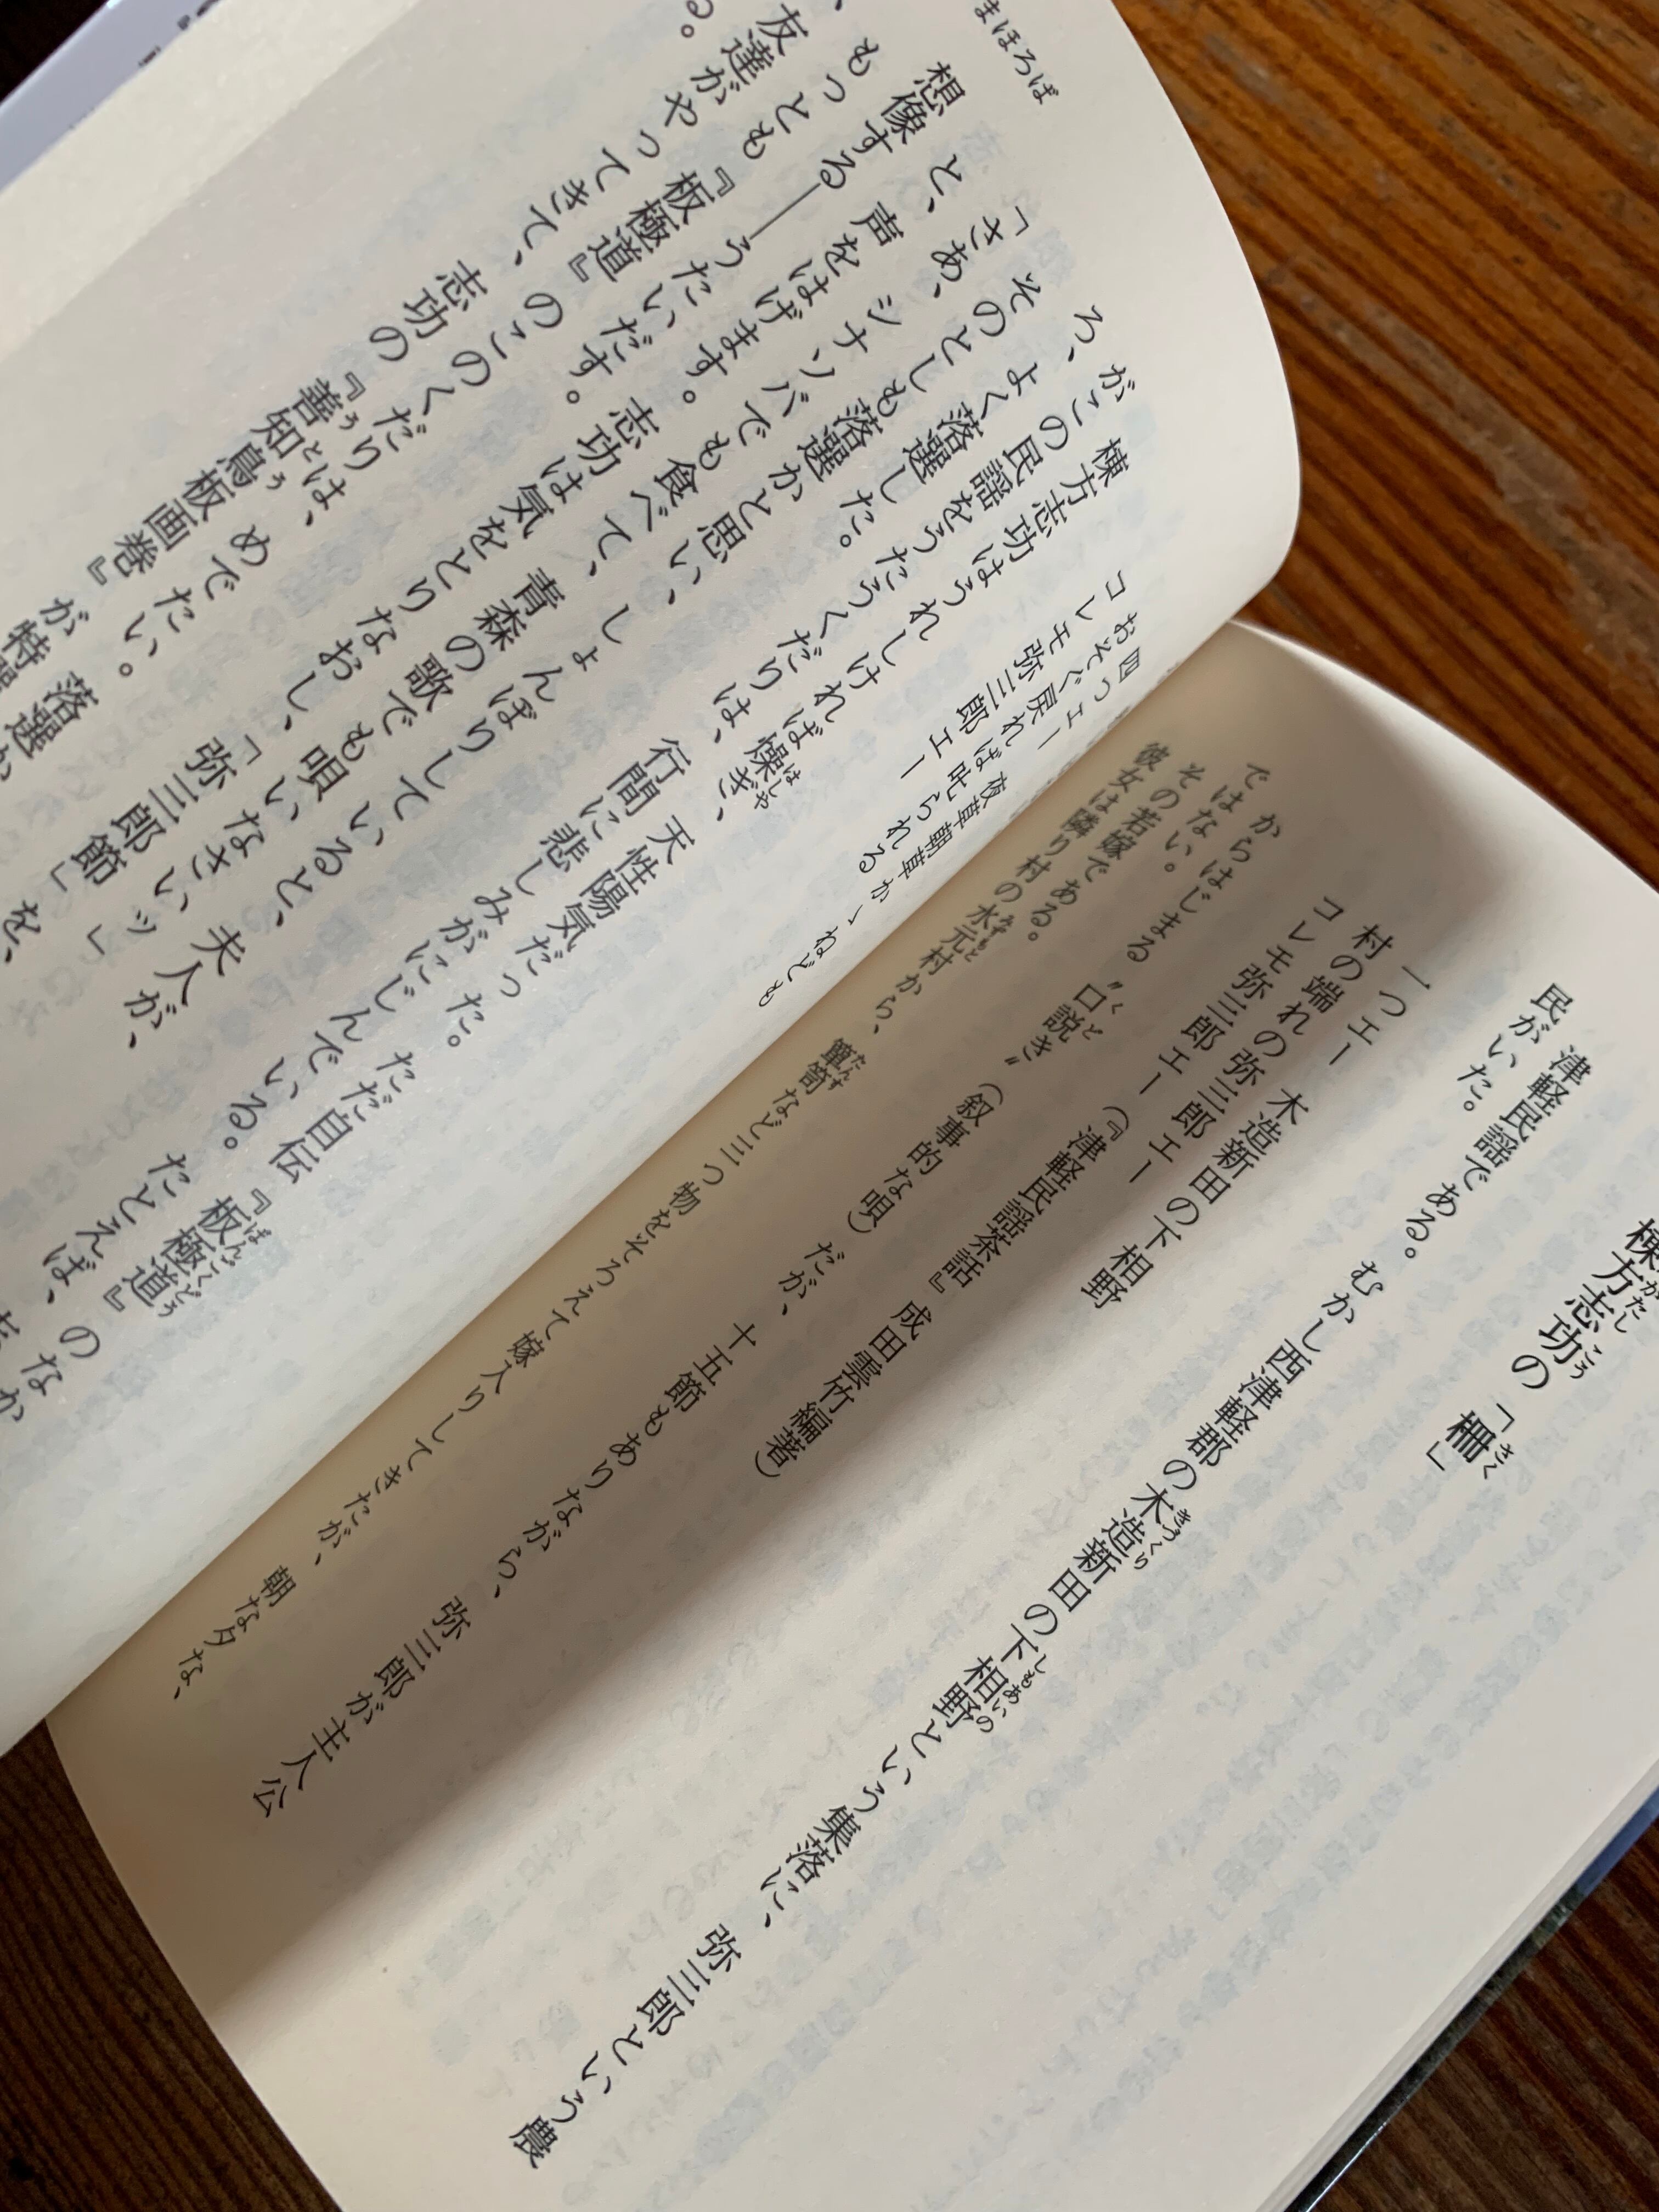 棟方志功の「柵」
津軽民謡である。むかし西津軽郡の木造新田の下相野という集落に、弥三郎という農
民がいた。
一つエー 木造新田の下相野
村の端れの弥三郎エー
コレモ弥三郎エー(『津軽民謡茶話』成田雲竹編著)
からはじまる〝口説き〟(叙事的な唄)だが、十五節もありながら、弥三郎が主人公
ではない。
その若嫁である。
彼女は隣り村の水元村から、箪笥など三つ物をそろえて嫁入りしてきたが、朝な夕な、
四つエー 夜草朝草かゝねども
おそぐ戻れば叱られる
コレモ弥三郎エー
棟方志功はうれしければ燥ぎ、天性陽気だった。ただ自伝『板極道』のなか
がこの民謡をうたうくだりは、行間に悲しみがにじんでいる。たとえば、
ろ、よく落選した。
そのとしも落選かと思い、しょんぼりしていると、夫人が、
「さあ、シナソバでも食べて、青森の歌でも唄いなさいッ」
と、声をはげます。志功は気をとりなおし、「弥三郎節」を、
想像する――うたいだす。
もっとも『板極道』のこのくだりは、めでたい。落選か
友達がやってきて、志功の『善知鳥板画巻』が特選
る。
まほろば